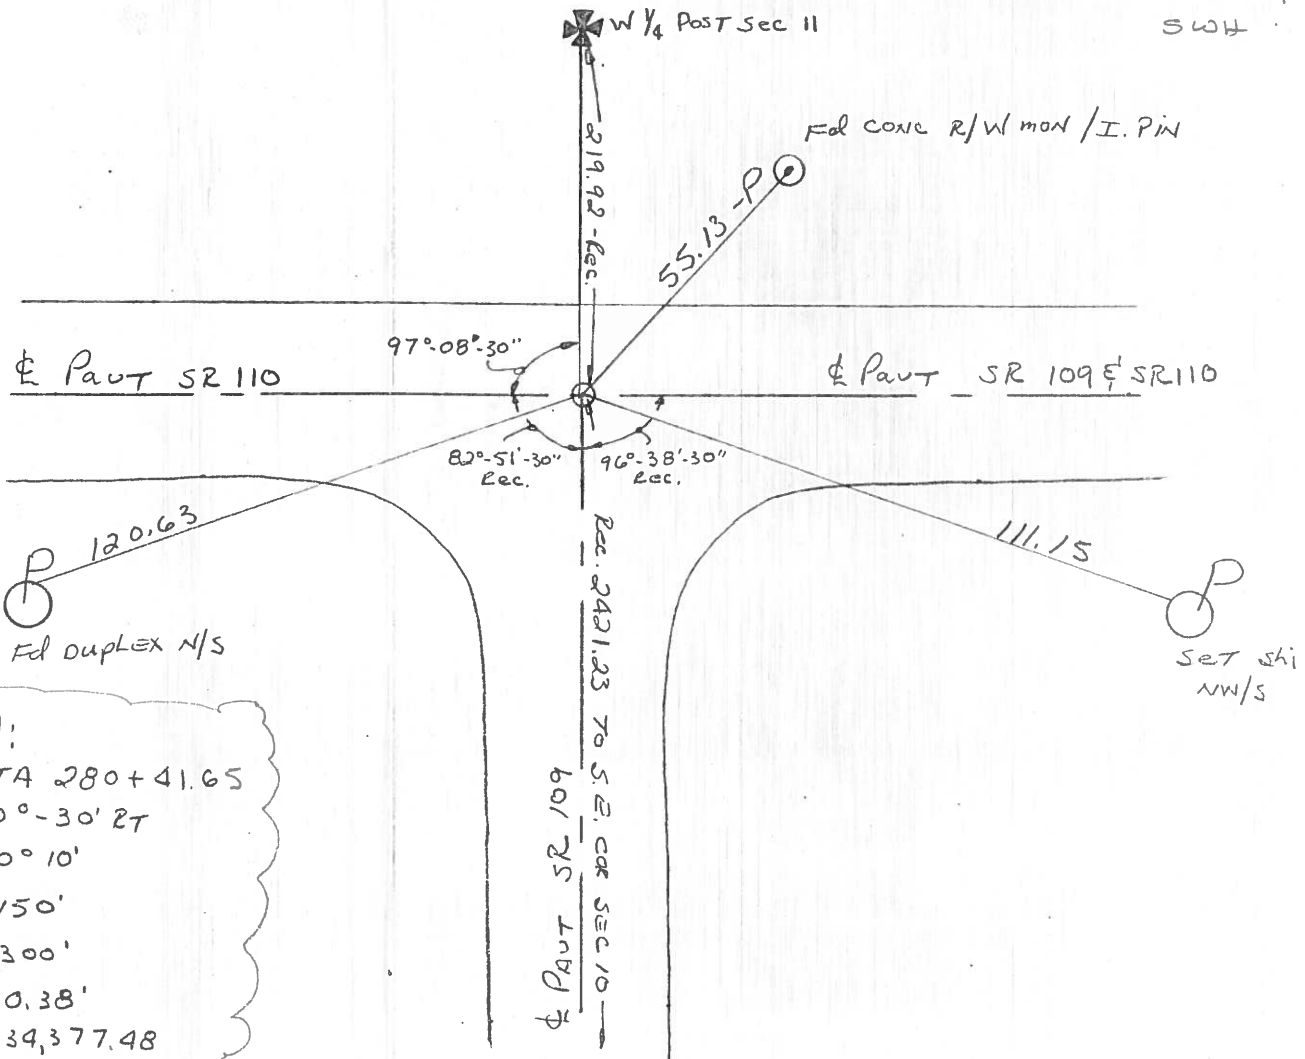 W 1/4 POST SEC 11
SWH
Fd CONC R/W MON / I. PIN
219.92 - Rec.
55.13 - P
97°-08'-30"
℄ PAVT SR 110
℄ PAVT SR 109 & SR 110
82°-51'-30"
Rec.
96°-38'-30"
Rec.
120.63
111.15
P
P
Fd DUPLEX N/S
SET Shi
NW/S
Rec. 2421.23 TO S.E. COR SEC 10
℄ PAVT SR 109
TA 280+41.65
0°-30' RT
0° 10'
150'
300'
0.38'
34,377.48